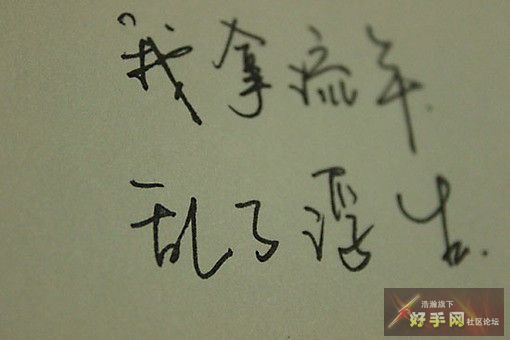 "我拿流年.
乱了浮生.
浩瀚旗下
好手网社区论坛